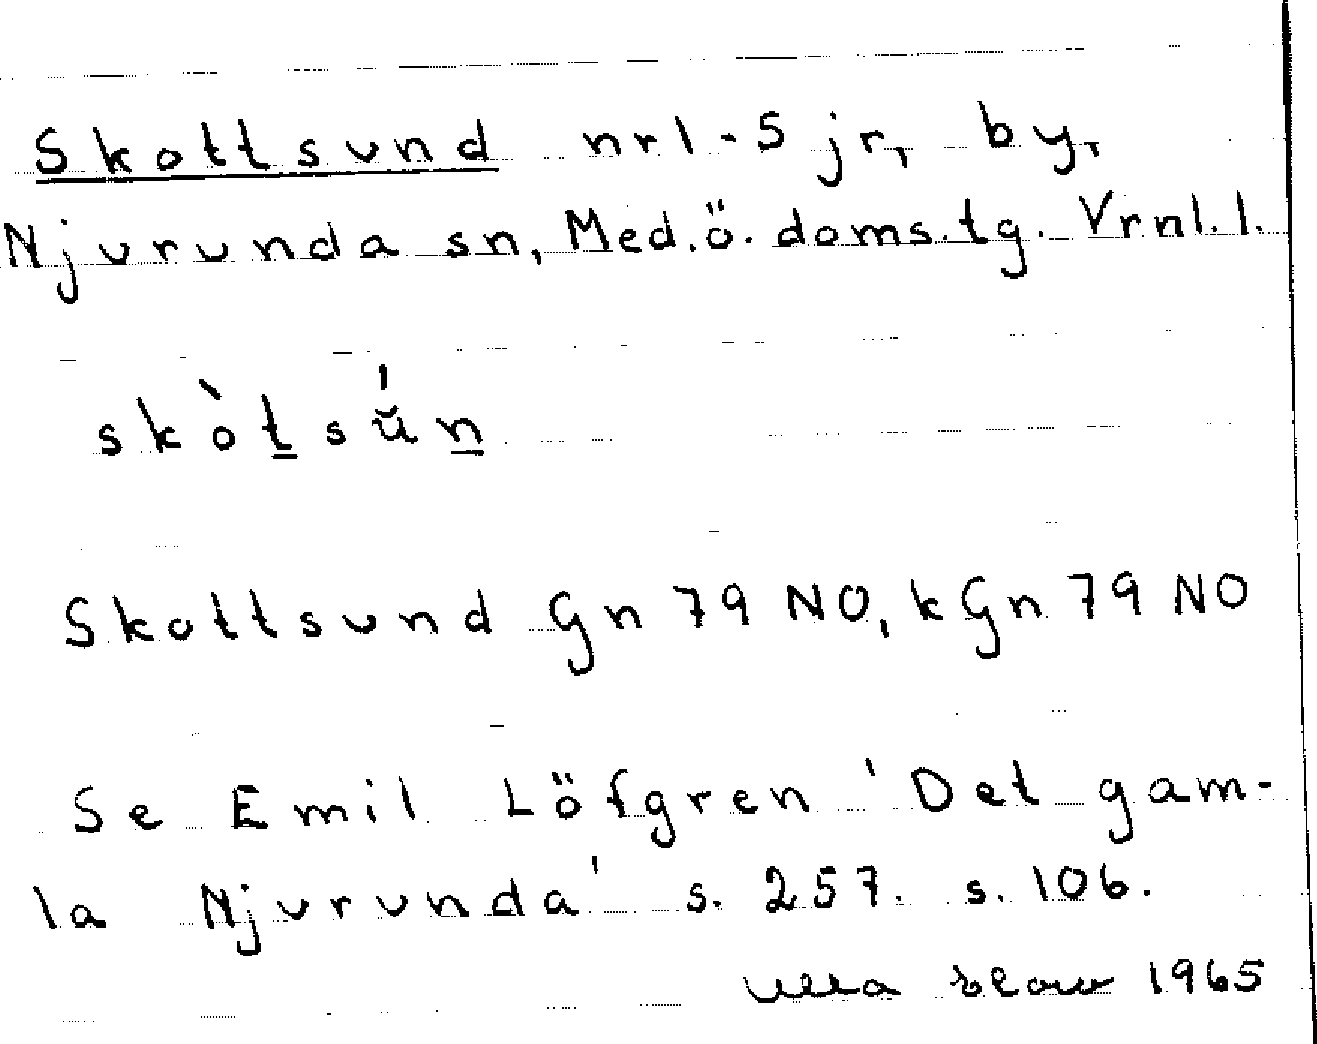 Skottsund nr1-5 jr, by,
Njurunda sn, Med.ö. doms.tg. Vrnl.l.
skòt̠sŭ́n̠
Skottsund Gn 79 NO, kGn 79 NO
Se Emil Löfgren 'Det gam-
la Njurunda' s. 257. s. 106.
1965